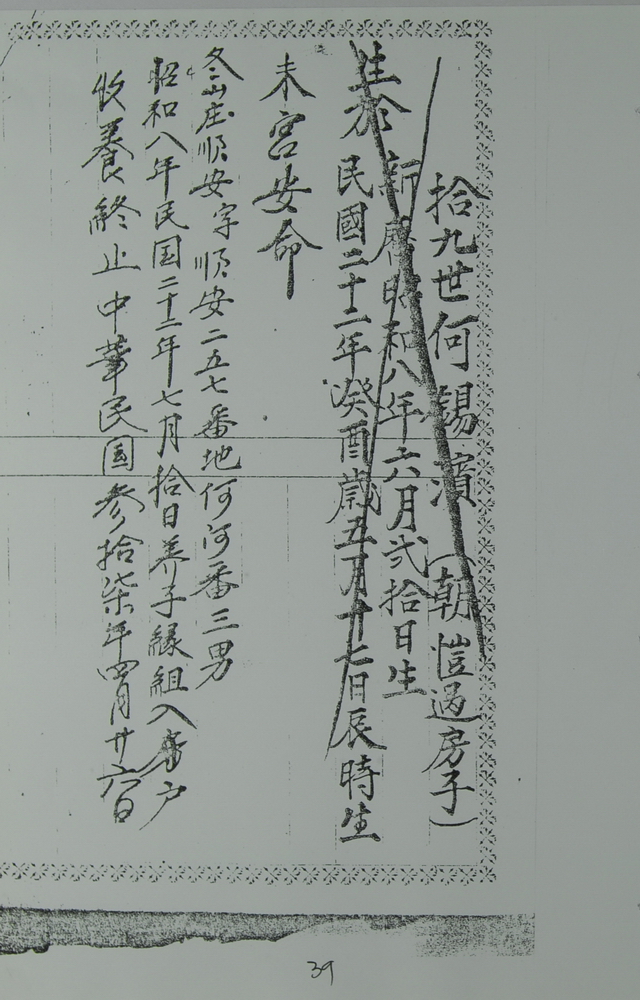 拾九世何錫濱(朝愷過房子)
新曆昭和八年六月弍拾日生
生於民國二十二年癸酉歲五月廿七日辰時生
未宮安命
冬山庄順安字順安二五七番地何河番三男
昭和八年民国二十二年七月拾日养子緣組入番户
收養終止中華民国参拾柒年四月廿六日
39